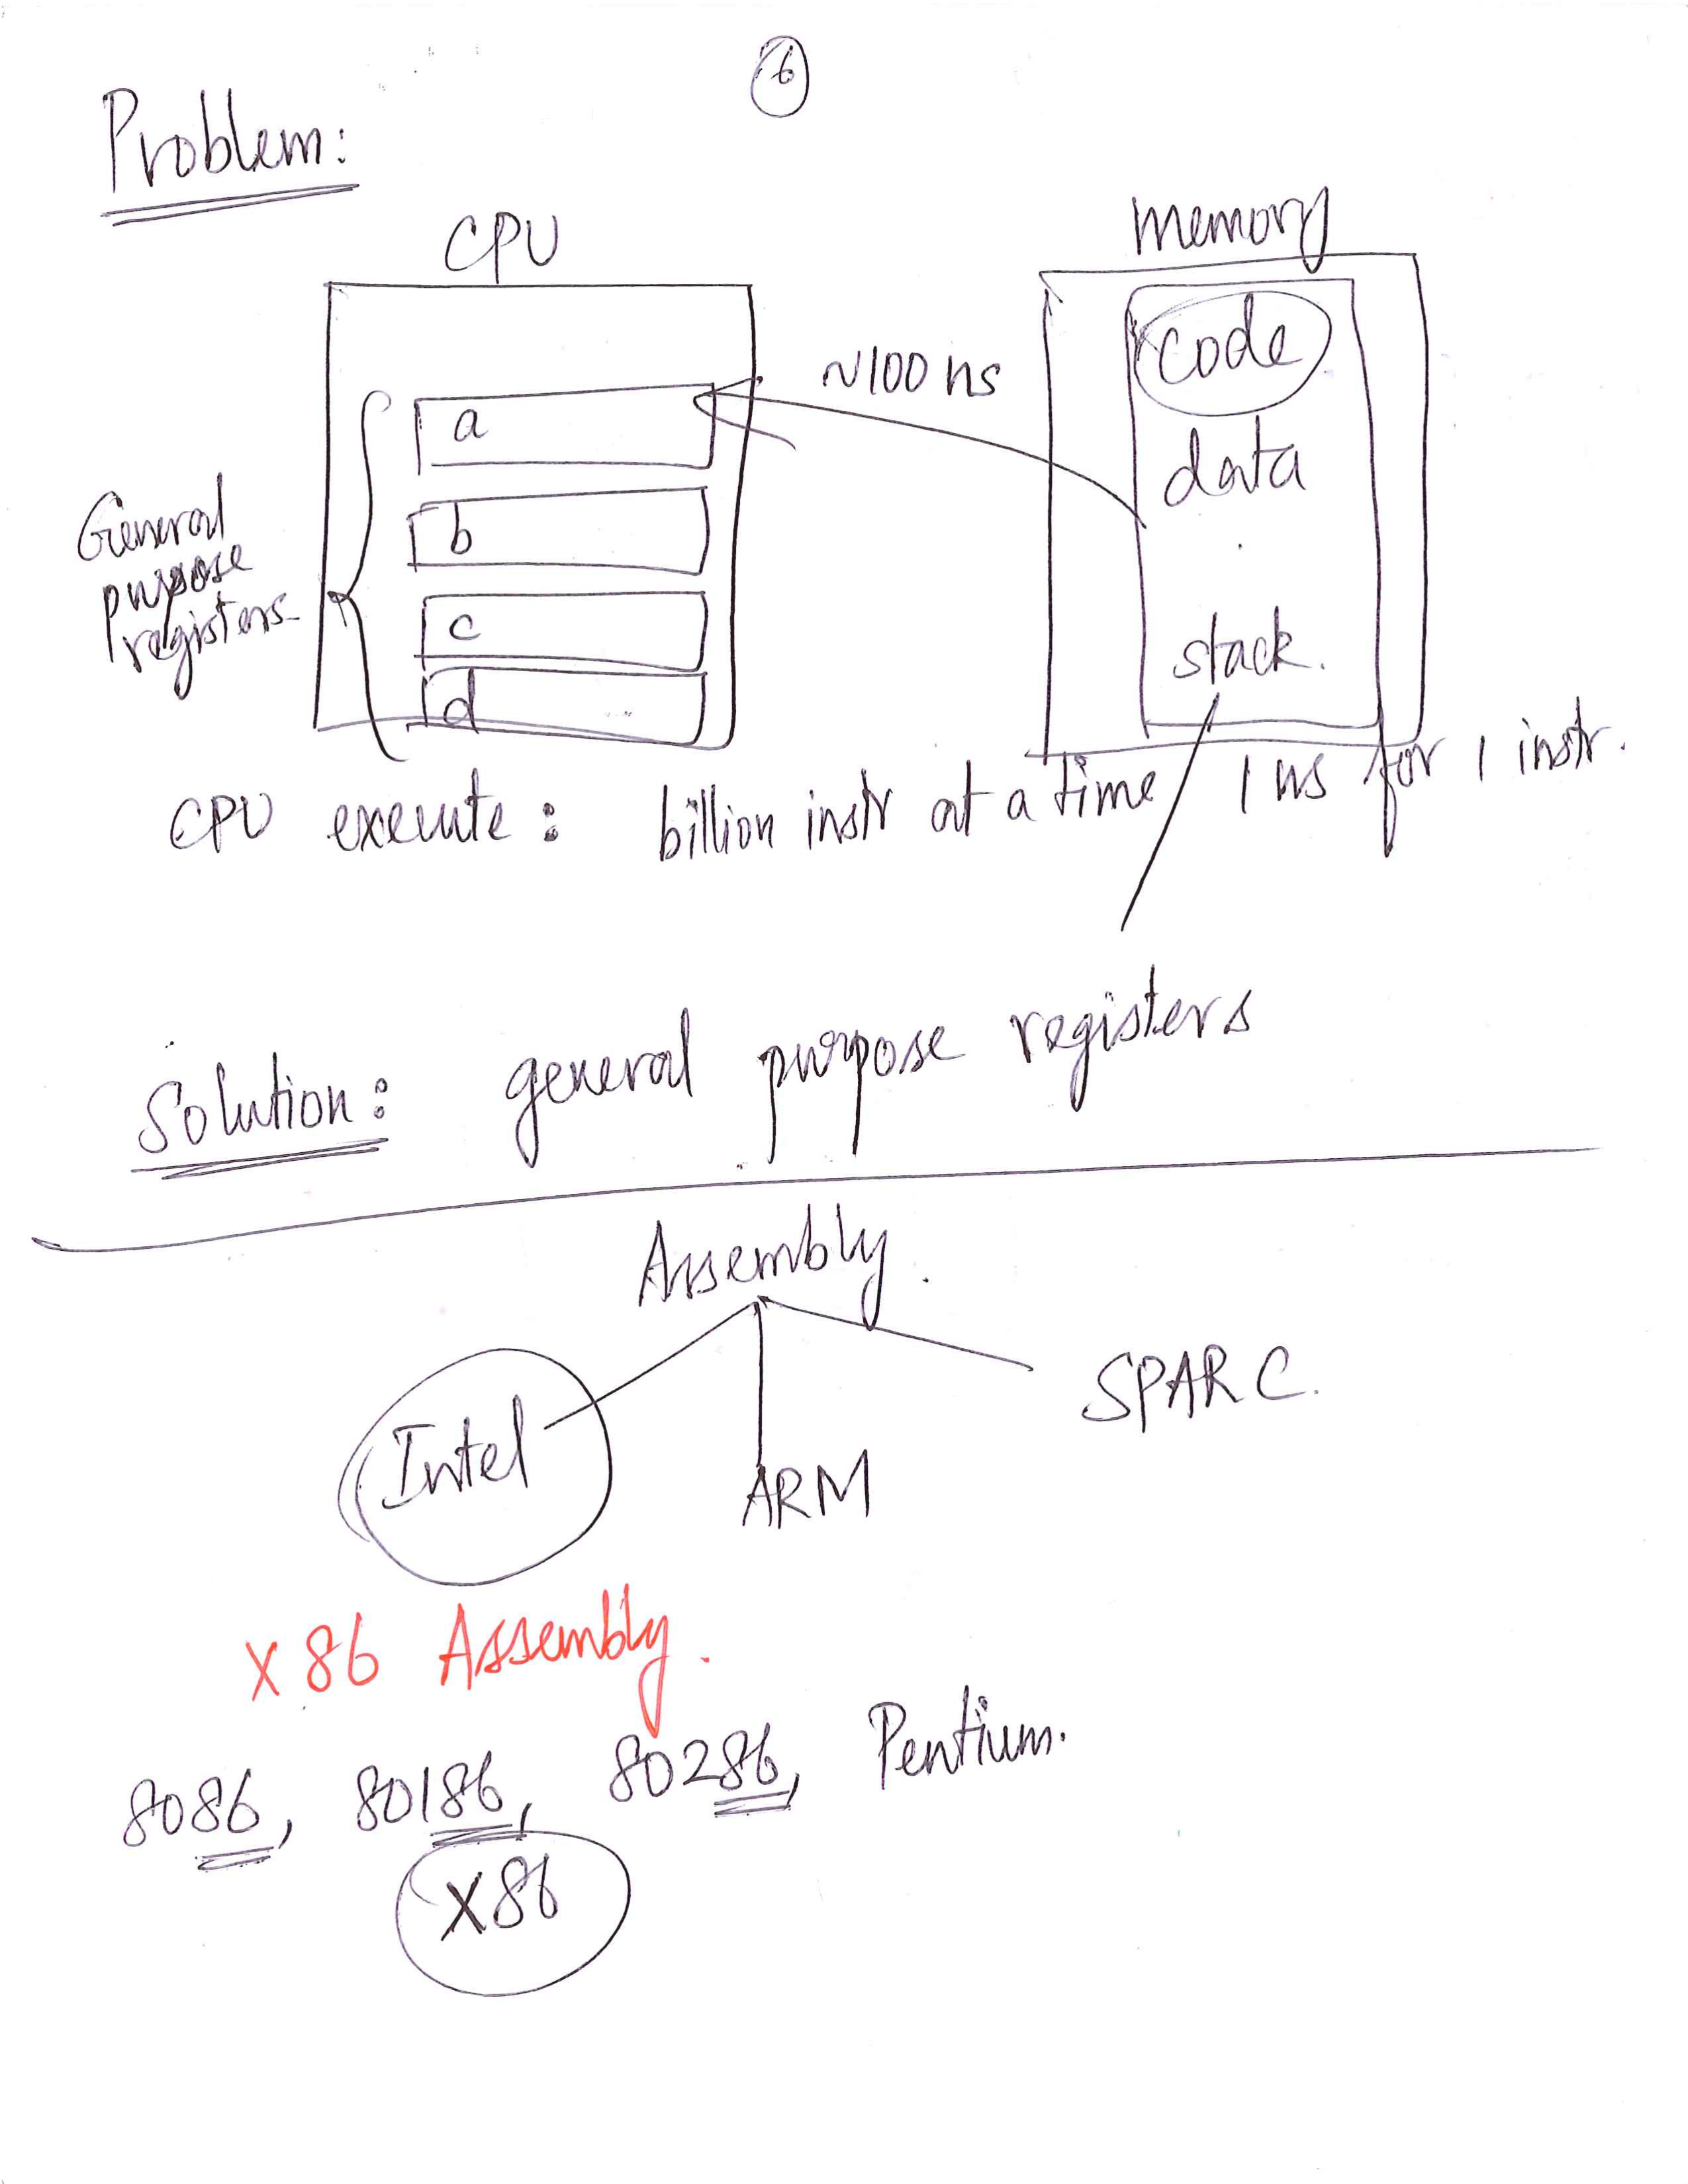 6
Problem:
CPU
memory
~100 ns
code
data
stack.
General
purpose
registers
a
b
c
d
CPU execute: billion instr at a time 1 ns for 1 instr.
Solution: general purpose registers
Assembly.
Intel
ARM
SPARC.
X86 Assembly.
8086, 80186, 80286, Pentium.
X86